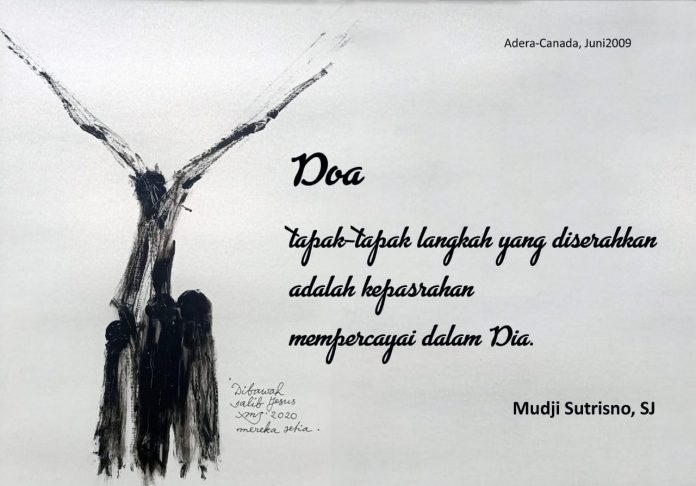 Adera-Canada, Juni2009
Doa
tapak-tapak langkah yang diserahkan
adalah kepasrahan
mempercayai dalam Dia.
Dibawah
salib Jesus
2020
mereka setia.
Mudji Sutrisno, SJ